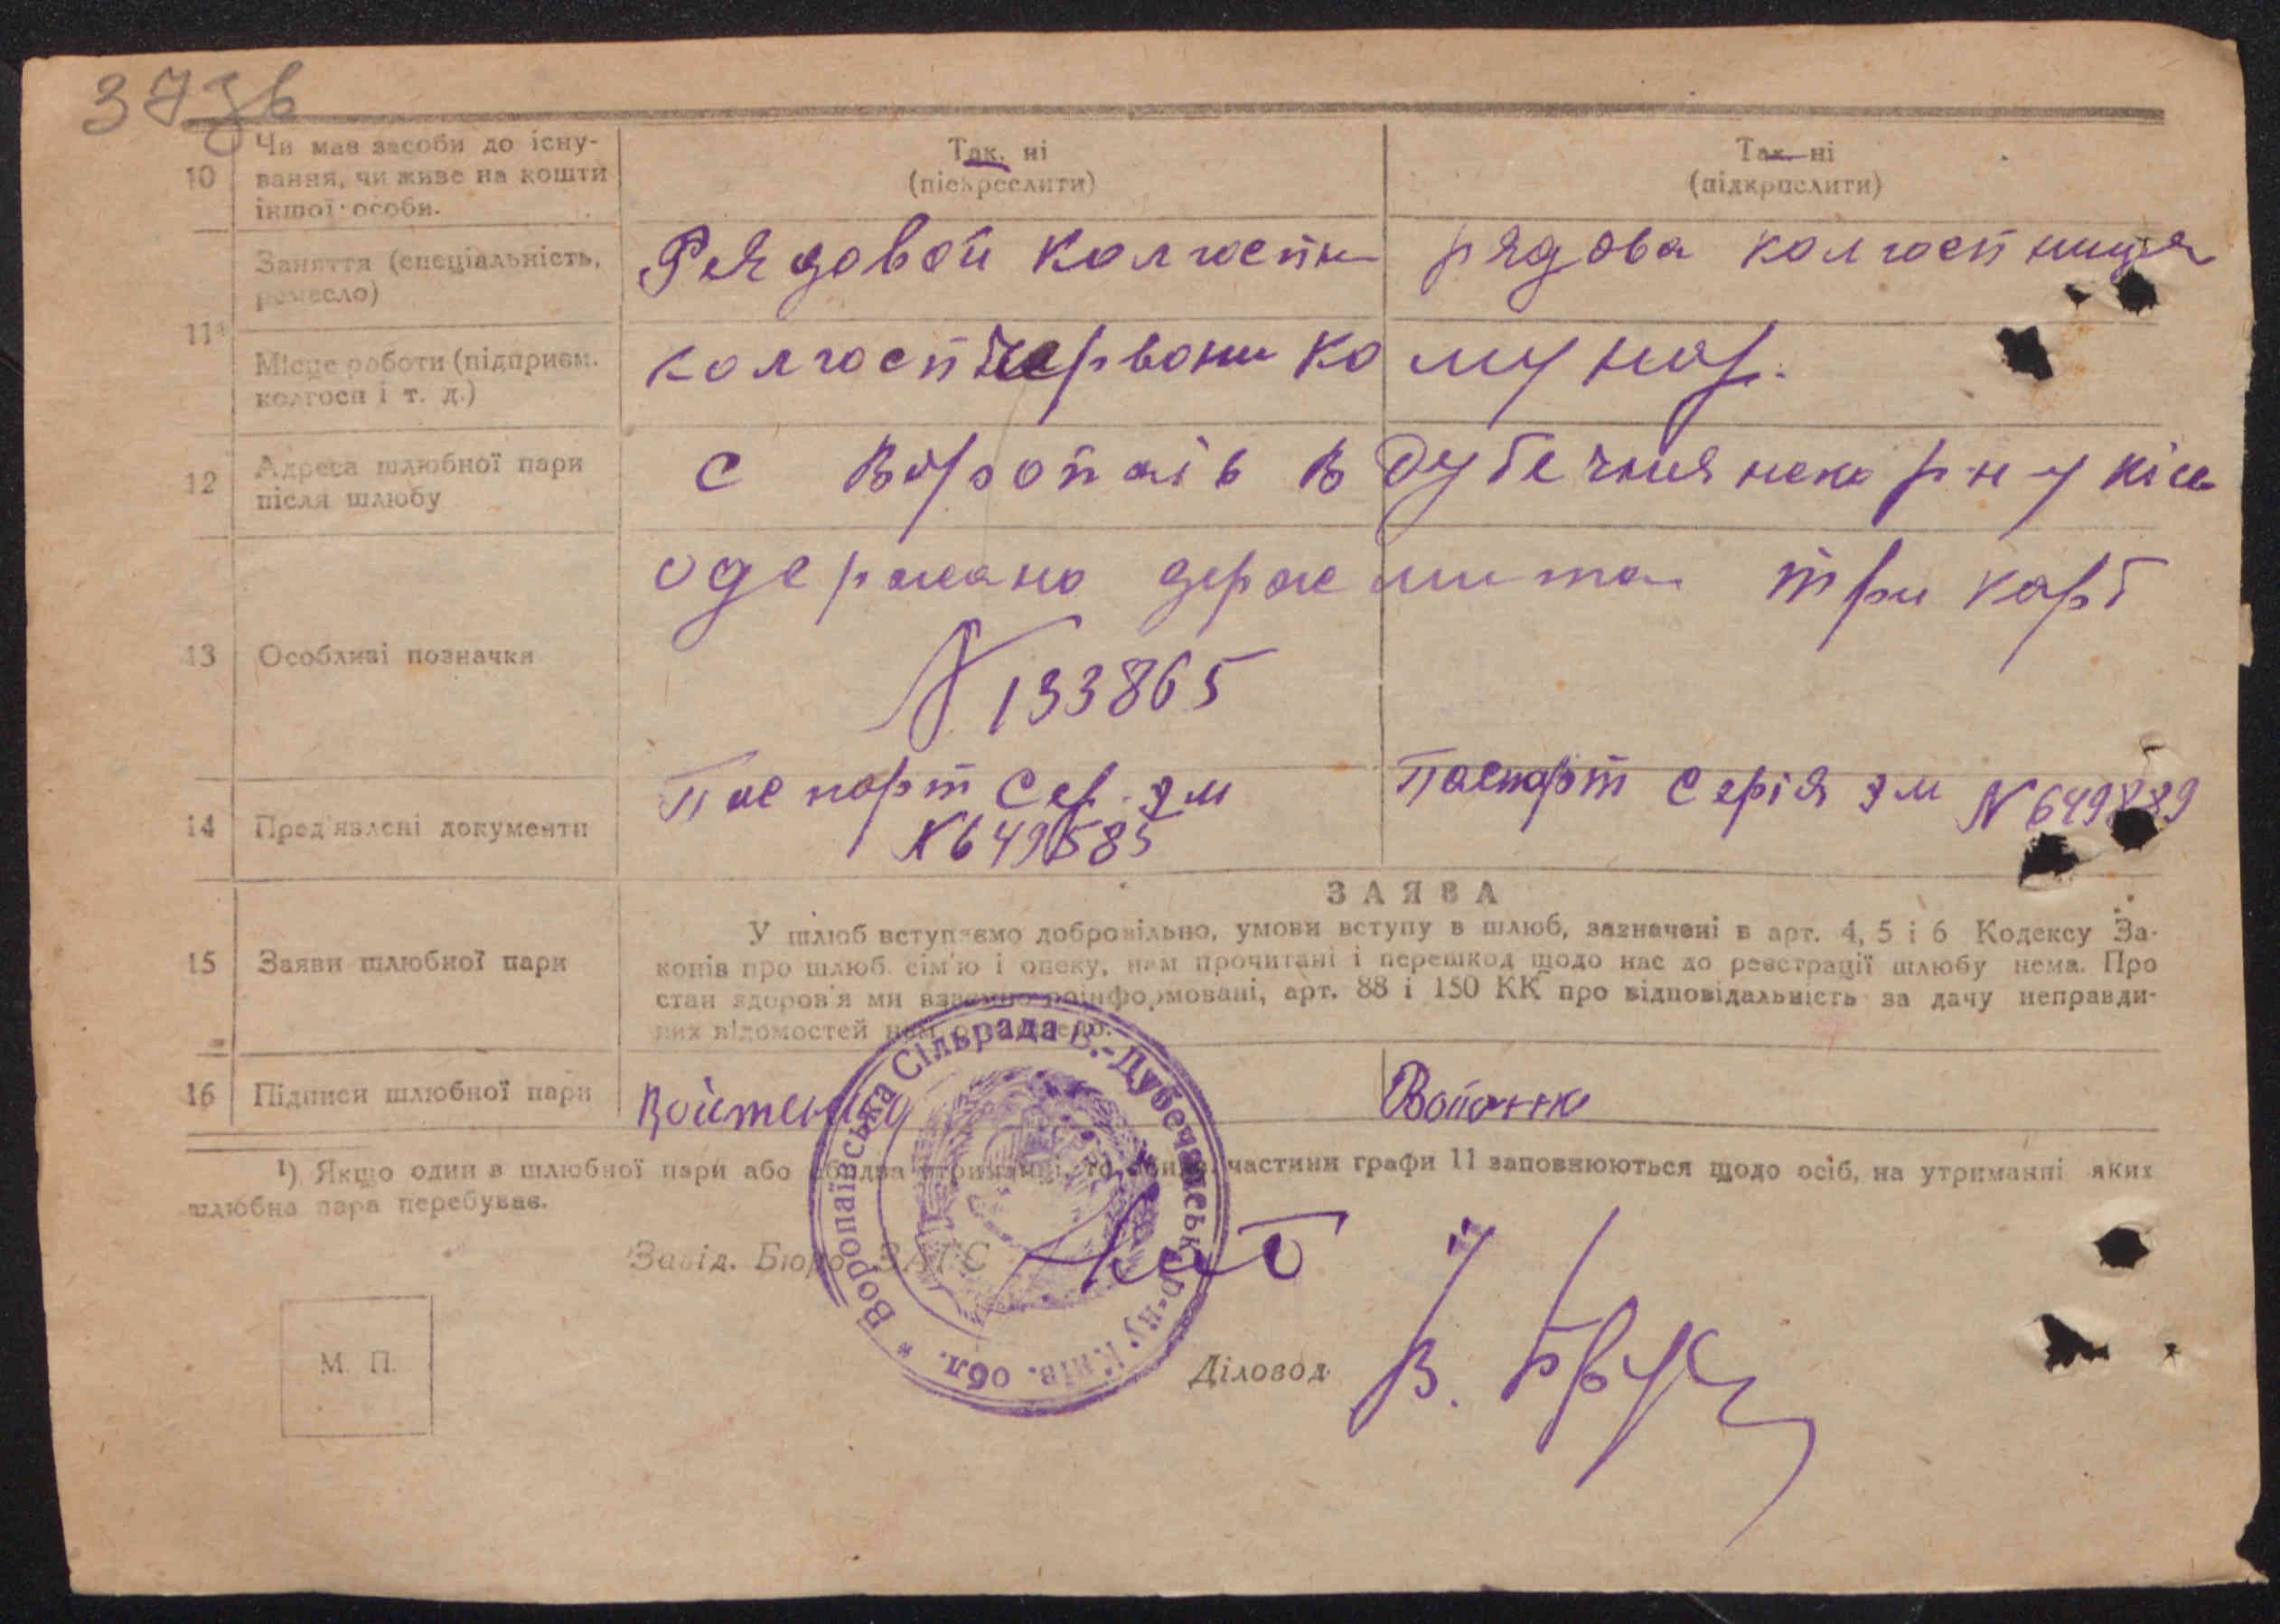 37 зв
10 Чи має засоби до існу-
вання, чи живе на кошти
іншої особи.
Так, ні
(підкреслити)
Так, ні
(підкрислити)
11¹
Заняття (спеціальність,
ремесло)
Рядовой колгоспн
рядова колгоспниця
Місце роботи (підприєм.
колгосп і т. д.)
колгосп Червони комунар.
12 Адреса шлюбної пари
після шлюбу
с Воропаїв В Дубечня р-ну
13 Особливі позначки
одержано держ мита три карб
N 133865
14 Пред'явлені документи
Паспорт Сер. зм
N 649585
Паспорт серія зм N 649889
15 Заяви шлюбної пари
ЗАЯВА
У шлюб вступаємо добровільно, умови вступу в шлюб, зазначені в арт. 4, 5 і 6 Кодексу За-
конів про шлюб, сім'ю і опеку, нам прочитані і перешкод щодо нас до реєстрації шлюбу нема. Про
стан здоров'я ми взаємно поінформовані, арт. 88 і 150 КК про відповідальність за дачу неправди-
вих відомостей нам оголошено.
16 Підписи шлюбної пари
Войтенко
¹) Якщо один з шлюбної пари або обидва утриманці, то частини графи 11 заповнюються щодо осіб, на утриманні яких
шлюбна пара перебуває.
Завід. Бюро ЗАГС
* Воропаївська Сільрада В.-Дубечанськ. р-ну Київ. обл.
М. П.
Діловод
В.